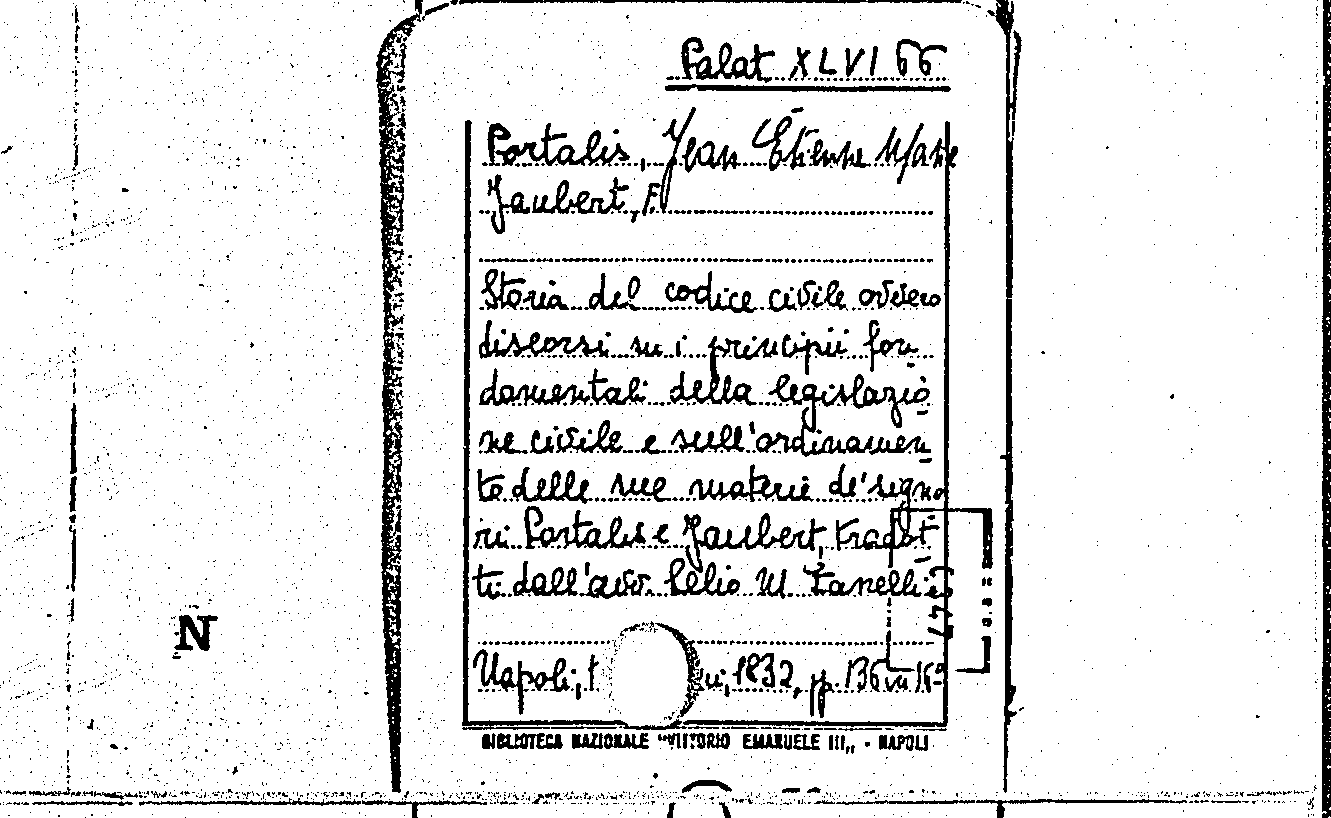 Palat XLVI 66
Portalis, Jean Étienne Marie
Jaubert, F.
Storia del codice civile ovvero
discorsi su i principii fon
damentali della legislazio
ne civile e sull'ordinamen
to delle sue materie de' signo
ri Portalis e Jaubert, tradot
ti dall'avv. Lelio M. Fanelli
Napoli, 1832, pp. 136 in 16º
BIBLIOTECA NAZIONALE "VITTORIO EMANUELE III„ - NAPOLI
N